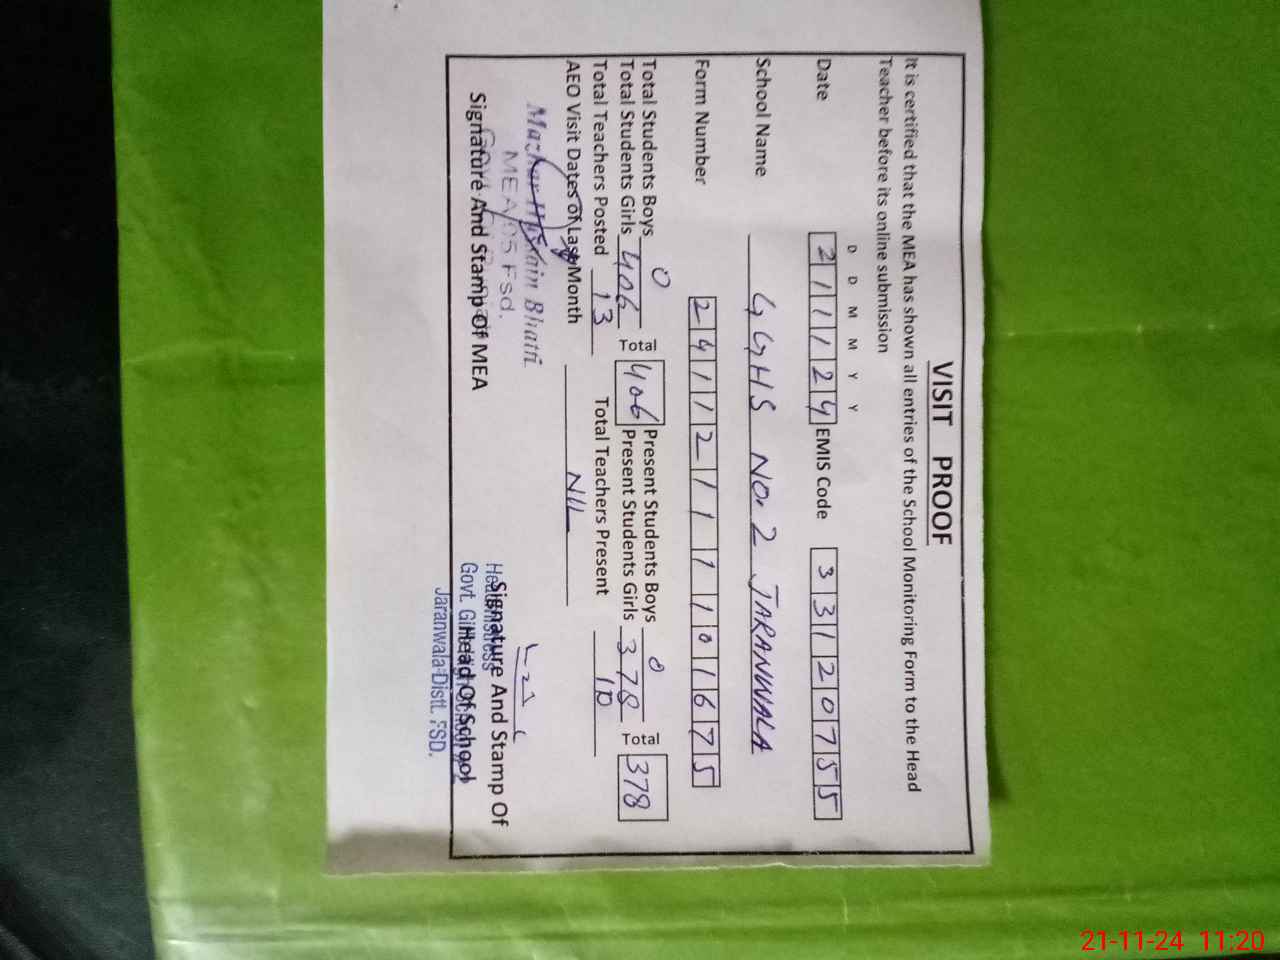 VISIT PROOF
It is certified that the MEA has shown all entries of the School Monitoring Form to the Head
Teacher before its online submission
D D M M Y Y
Date 2 1 1 1 2 4 EMIS Code 3 3 1 2 0 7 5 5
School Name GGHS NO. 2 JARANWALA
Form Number 2 4 1 1 2 1 1 1 1 0 1 6 7 5
Total Students Boys 0 Present Students Boys 0
Total Students Girls 406 Total 406 Present Students Girls 378 Total 378
Total Teachers Posted 13 Total Teachers Present 10
AEO Visit Dates of Last Month NIL
Mazhar Hussain Bhatti
MEA 05 Fsd.
Signature And Stamp Of MEA
Signature And Stamp Of
Head Of School
Headmistress
Govt. Girls High School
Jaranwala Distt. FSD.
21-11-24 11:20